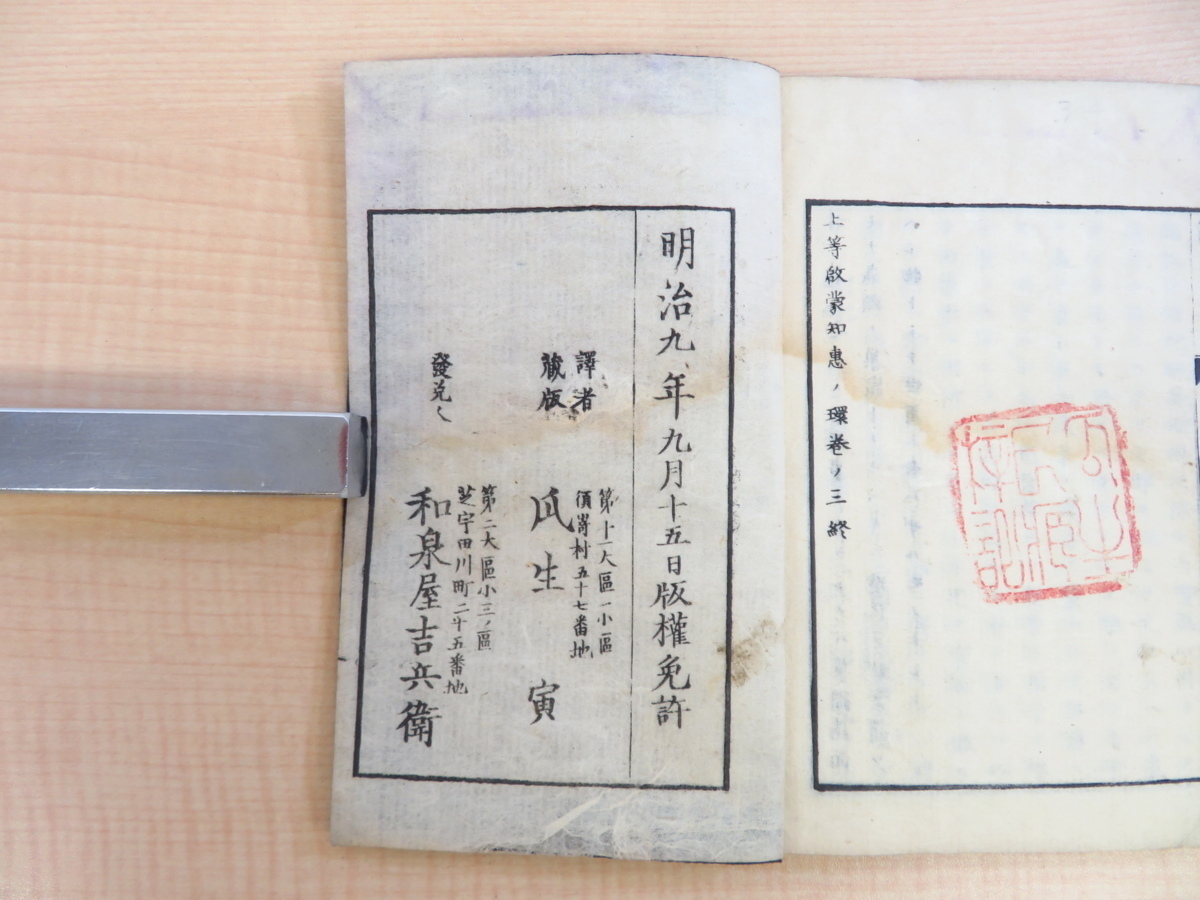 上等啟蒙知惠ノ環卷ノ三終
明治九年九月十五日版權免許
譯者
藏版
第十一大區一小區
須嵜村五十七番地
瓜生寅
發兌人
第二大區小三ノ區
芝宇田川町二十五番地
和泉屋吉兵衛